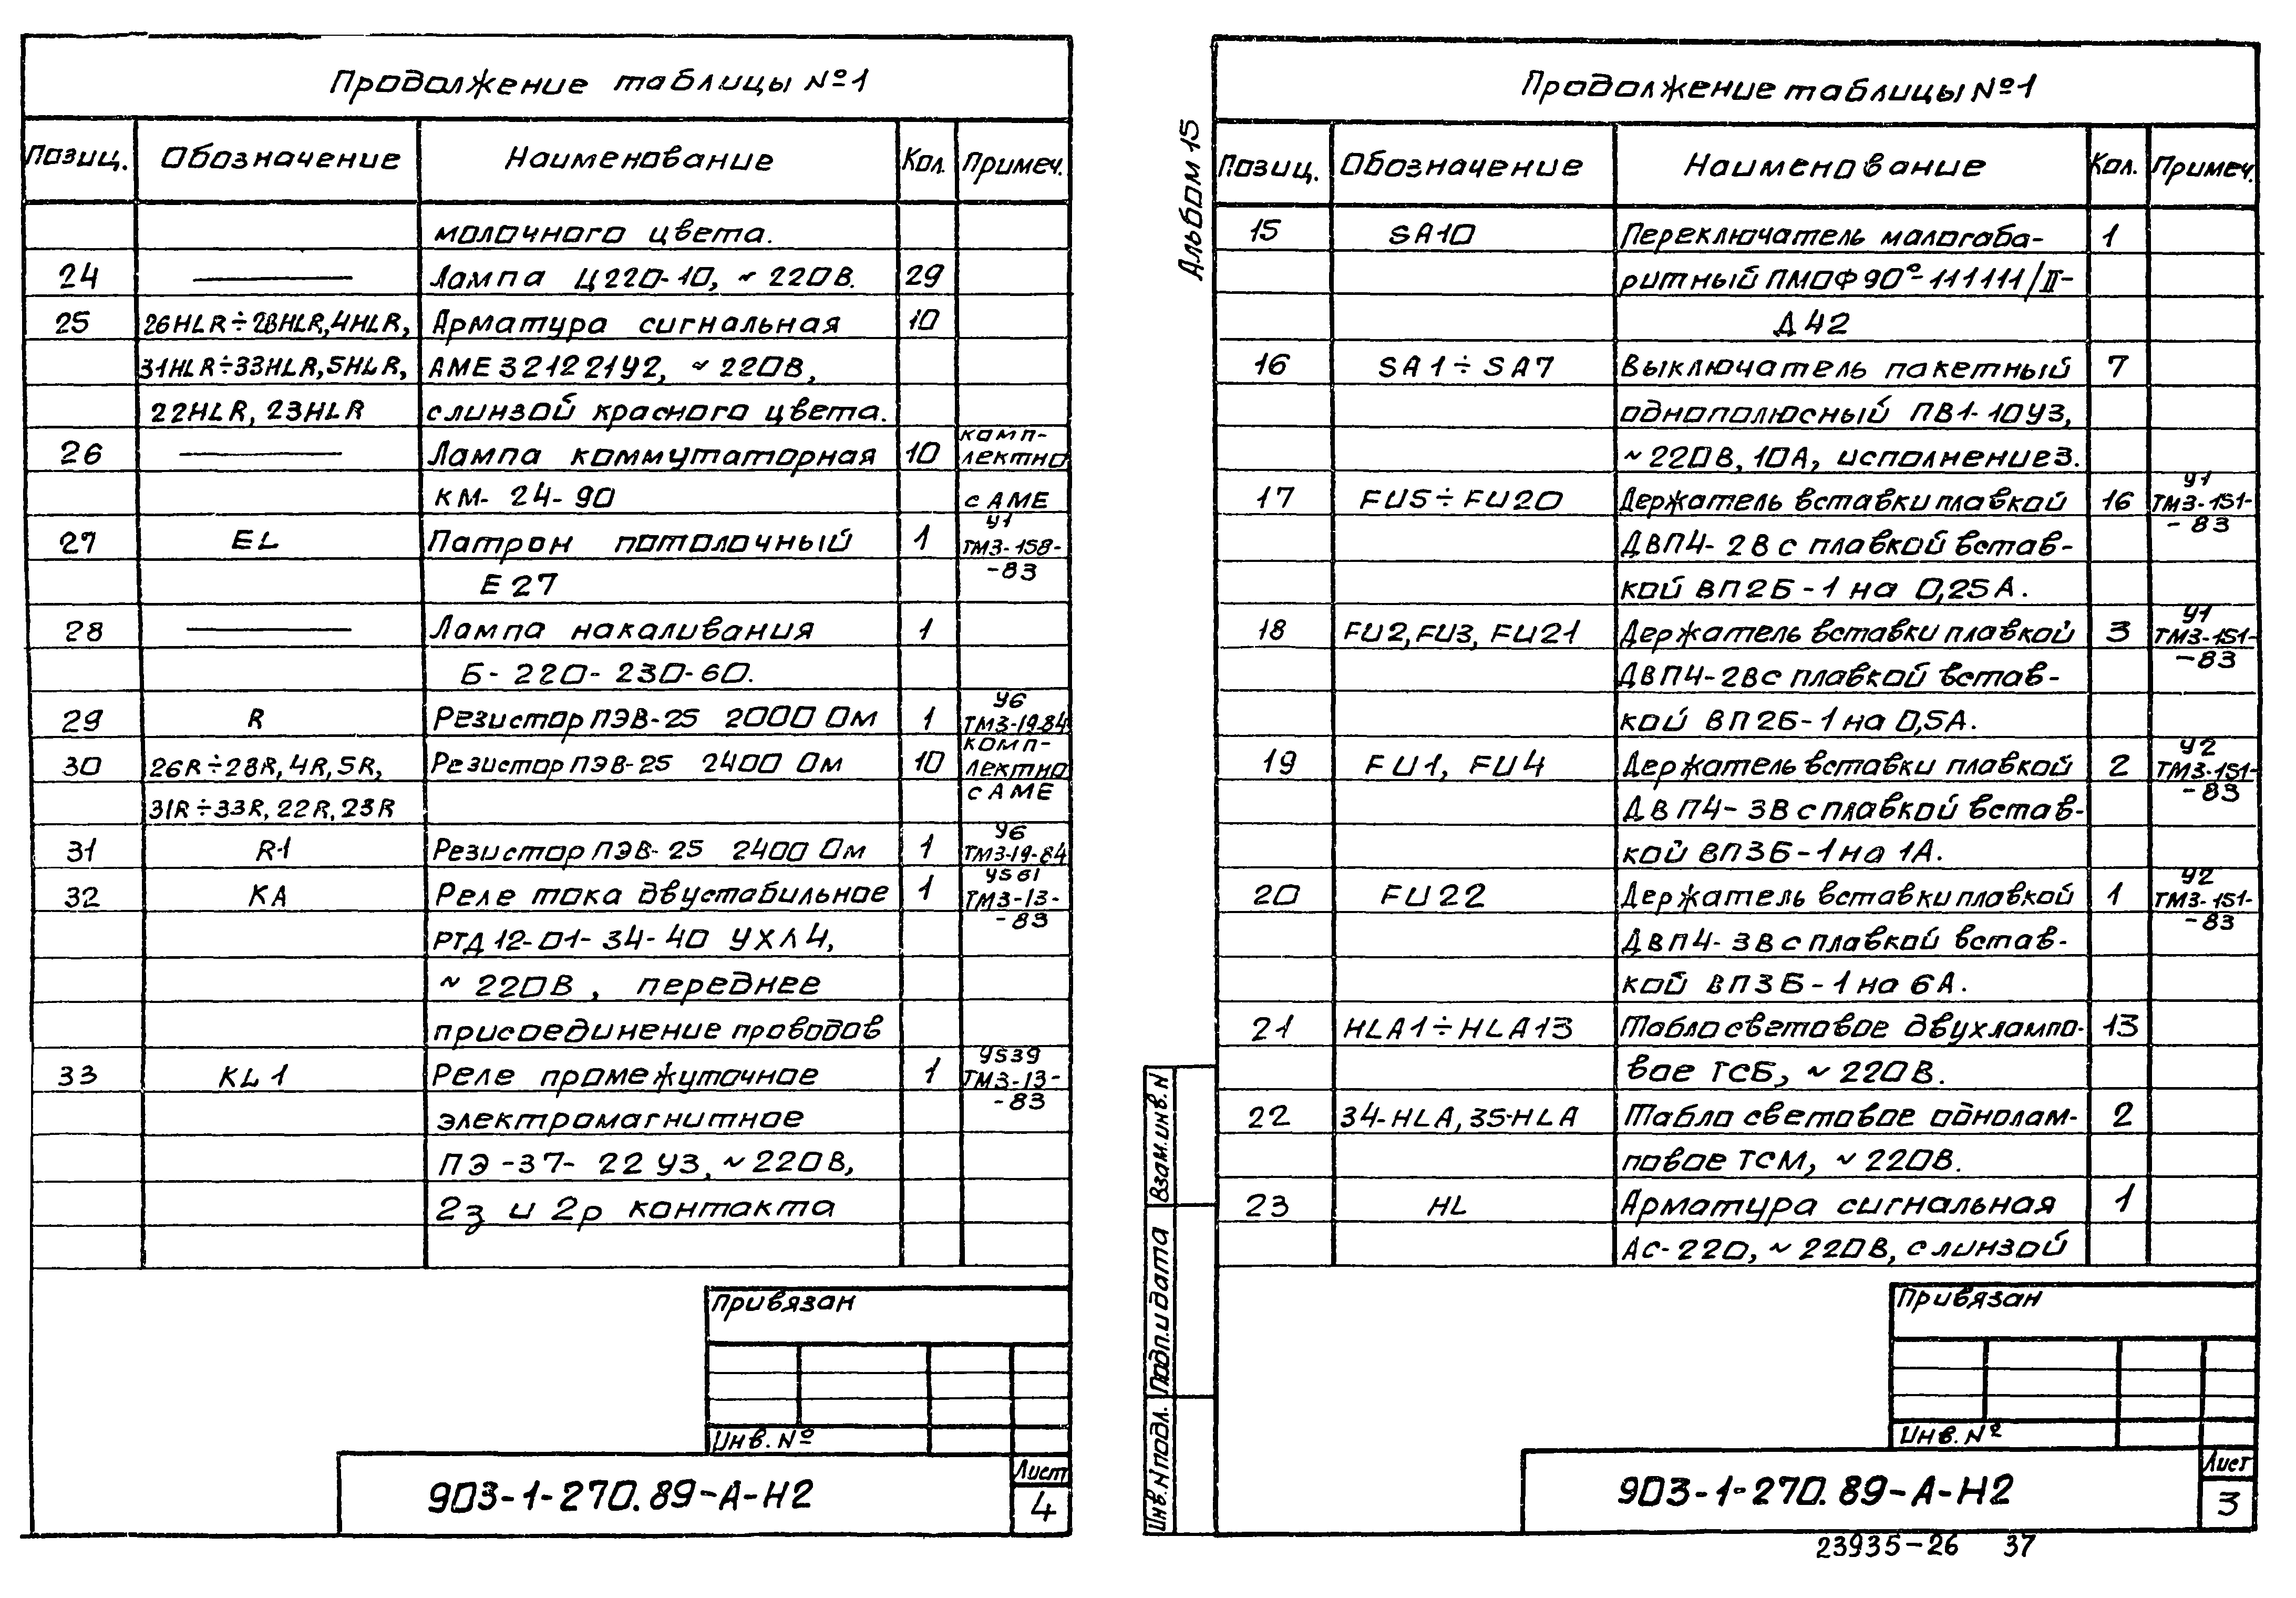 Продолжение таблицы №1
Позиц. Обозначение Наименование Кол. Примеч.
молочного цвета.
24 ——— Лампа Ц220-10, ~ 220В. 29
25 26HLR÷28HLR,4HLR, Арматура сигнальная 10
31HLR÷33HLR,5HLR, АМЕ3212 21У2, ~ 220В,
22HLR, 23HLR слинзой красного цвета.
26 ——— Лампа коммутаторная 10 комп-
лектно
КМ-24-90 с АМЕ
27 EL Патрон потолочный 1 У1
ТМ3-158-
Е27 -83
28 ——— Лампа накаливания 1
Б-220-230-60.
29 R Резистор ПЭВ-25 2000 Ом 1 У6
ТМ3-19-84
30 26R÷28R, 4R, 5R, Резистор ПЭВ-25 2400 Ом 10 комп-
лектно
31R÷33R, 22R, 23R с АМЕ
31 R1 Резистор ПЭВ-25 2400 Ом 1 У6
ТМ3-19-84
32 KA Реле тока двустабильное 1 У561
ТМ3-13-
РТД12-01-34-40 УХЛ4, -83
~ 220В, переднее
присоединение проводов
33 KL1 Реле промежуточное 1 У539
ТМ3-13-
электромагнитное -83
ПЭ-37-22 У3, ~220В,
2з и 2р контакта
Привязан
Инв. №
903-1-270.89-А-Н2
Лист
4
Альбом 15
Продолжение таблицы №1
Позиц. Обозначение Наименование Кол. Примеч.
15 SA10 Переключатель малогаба- 1
ритный ПМОФ90°-111111/II-
Д42
16 SA1÷SA7 Выключатель пакетный 7
однополюсный ПВ1-10У3,
~220В, 10А, исполнение3.
17 FU5÷FU20 Держатель вставки плавкой 16 У1
ТМ3-151-
ДВП4-2В с плавкой встав- -83
кой ВП2Б-1 на 0,25А.
18 FU2, FU3, FU21 Держатель вставки плавкой 3 У1
ТМ3-151-
ДВП4-2В с плавкой встав- -83
кой ВП2Б-1 на 0,5А.
19 FU1, FU4 Держатель вставки плавкой 2 У2
ТМ3-151-
ДВП4-3В с плавкой встав- -83
кой ВП3Б-1 на 1А.
20 FU22 Держатель вставки плавкой 1 У2
ТМ3-151-
ДВП4-3В с плавкой встав- -83
кой ВП3Б-1 на 6А.
21 HLA1÷HLA13 Табло световое двухлампо- 13
вое ТСБ, ~ 220В.
22 34-HLA, 35-HLA Табло световое однолам- 2
повое ТСМ, ~ 220В.
23 HL Арматура сигнальная 1
АС-220, ~ 220В, с линзой
Привязан
Инв. №
903-1-270.89-А-Н2
Лист
3
Взам.инв.N
Подп.и дата
Инв.Nподл.
23935-26 37